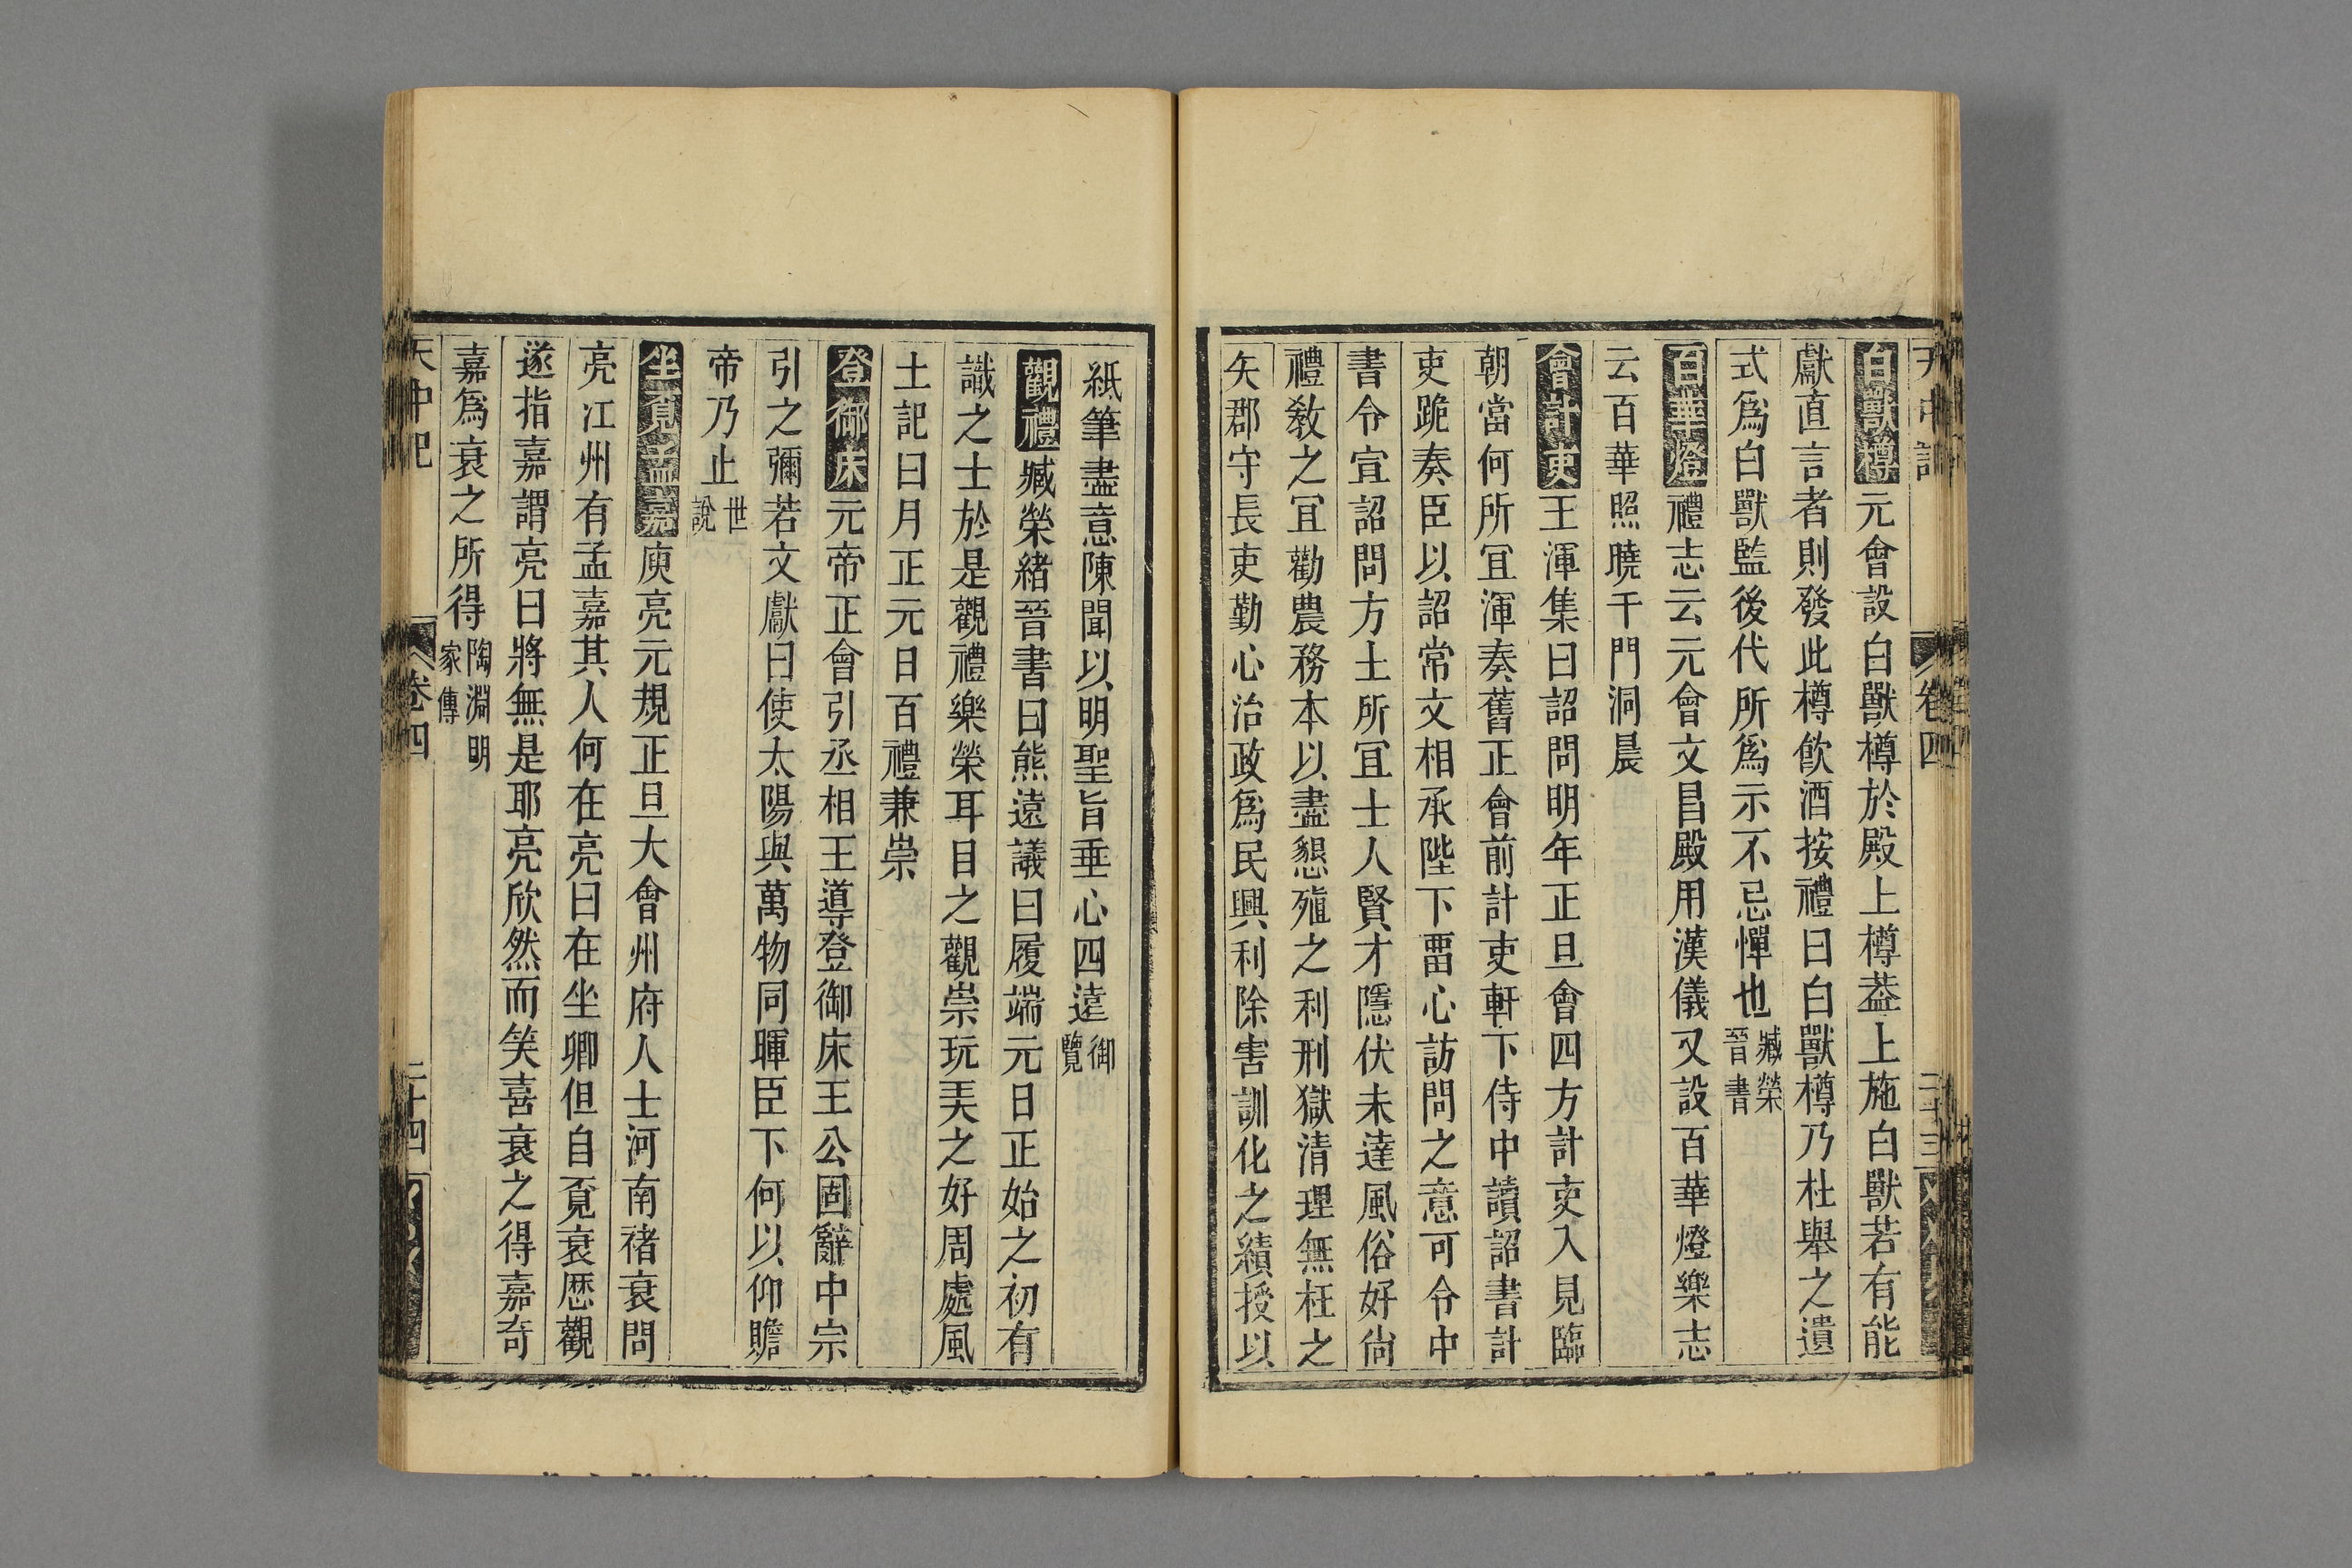 天中記
卷四
二十三
白獸樽元會設白獸樽於殿上樽葢上施白獸若有能
獻直言者則發此樽飲酒按禮曰白獸樽乃杜舉之遺
式爲白獸監後代所爲示不忌憚也臧榮晉書
百華燈禮志云元會文昌殿用漢儀又設百華燈樂志
云百華照曉千門洞晨
會計吏王渾集曰詔問明年正旦會四方計吏入見臨
朝當何所冝渾奏舊正會前計吏軒下侍中讀詔書計
吏跪奏臣以詔常文相承陛下畱心訪問之意可令中
書令宣詔問方土所冝士人賢才隱伏未達風俗好尙
禮敎之冝勸農務本以盡懇殖之利刑獄清理無枉之
矢郡守長吏勤心治政爲民興利除害訓化之績授以
紙筆盡意陳聞以明聖旨垂心四遠御覽
觀禮臧榮緖晉書曰熊遠議曰履端元日正始之初有
識之士於是觀禮樂榮耳目之觀崇玩美之好周處風
土記曰月正元日百禮兼崇
登御床元帝正會引丞相王導登御床王公固辭中宗
引之彌若文獻曰使太陽與萬物同暉臣下何以仰贍
帝乃止世說
坐覓孟嘉庾亮元規正旦大會州府人士河南禇裒問
亮江州有孟嘉其人何在亮曰在坐卿但自覓裒歷觀
遂指嘉謂亮曰將無是耶亮欣然而笑喜裒之得嘉奇
嘉爲裒之所得陶淵明家傳
天中記
卷四
二十四